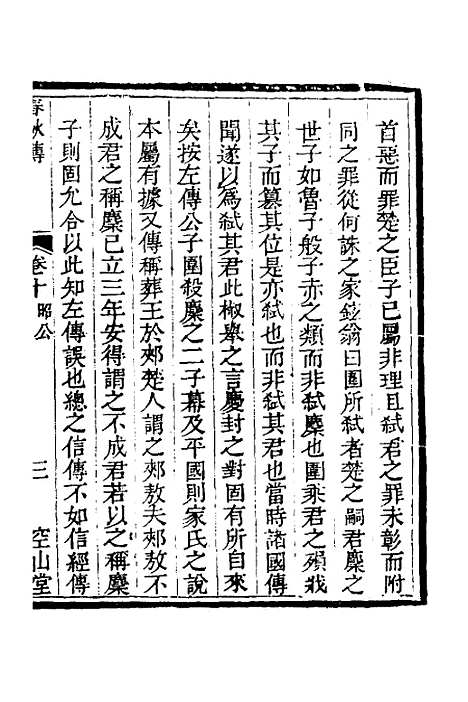 首惡而罪楚之臣子已屬非理且弑君之罪未彰而附
同之罪從何誅之家鉉翁曰圍所弑者楚之嗣君麇之
世子如魯子般子赤之類而非弑麇也圍乘君之殞戕
其子而篡其位是亦弑也而非弑其君也當時諸國傳
聞遂以為弑其君此椒舉之言慶封之對固有所自來
矣按左傳公子圍殺麇之二子幕及平國則家氏之說
本屬有據又傳稱葬王於郟楚人謂之郟敖夫郟敖不
成君之稱麇已立三年安得謂之不成君若以之稱麇
子則固允合以此知左傳誤也總之信傳不如信經傳
春秋傳
卷十 昭公
三
空山堂